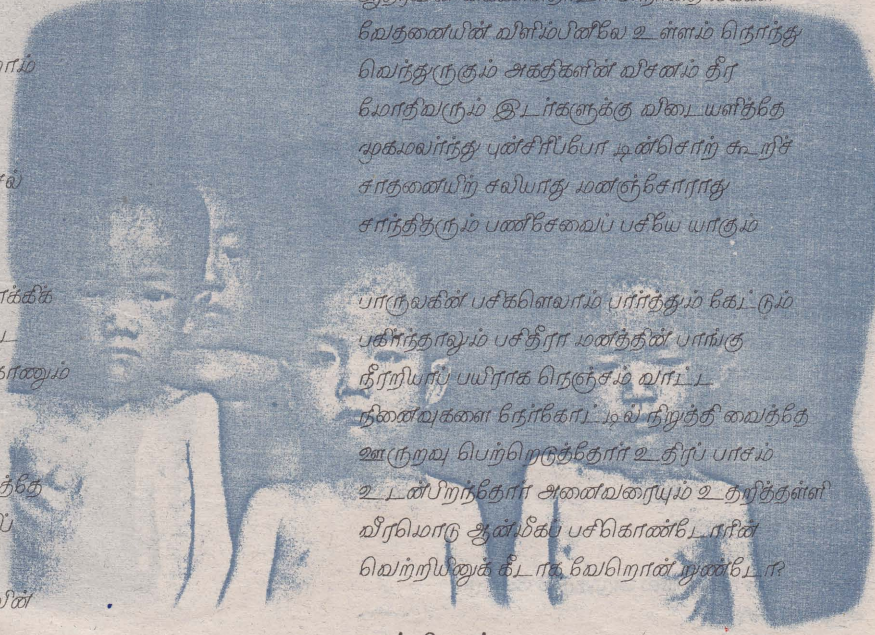 வேதனையின் விளிம்பினிலே உள்ளம் நொந்து
வெந்துருகும் அகதிகளின் விசனம் தீர
மோதிவரும் இடர்களுக்கு விடையளித்தே
முகமலர்ந்து புன்சிரிப்போ டின்சொற் கூறிச்
சாதனையிற் சலியாது மனஞ்சோராது
சாந்திதரும் பணிசேவைப் பசியே யாகும்
பாருலகின் பசிகளெலாம் பார்த்தும் கேட்டும்
பகிர்ந்தாலும் பசிதீரா மனத்தின் பாங்கு
நீரறியாப் பயிராக நெஞ்சம் வாட்ட
நினைவுகளை நேர்கோட்டில் நிறுத்தி வைத்தே
ஊருறவு பெற்றெடுத்தோர் உதிரப் பாசம்
உடன்பிறந்தோர் அனைவரையும் உதறித்தள்ளி
வீரமொடு ஆன்மீகப் பசிகொண்டோரின்
வெற்றியினுக் கீடாக வேறொன் றுண்டோ?